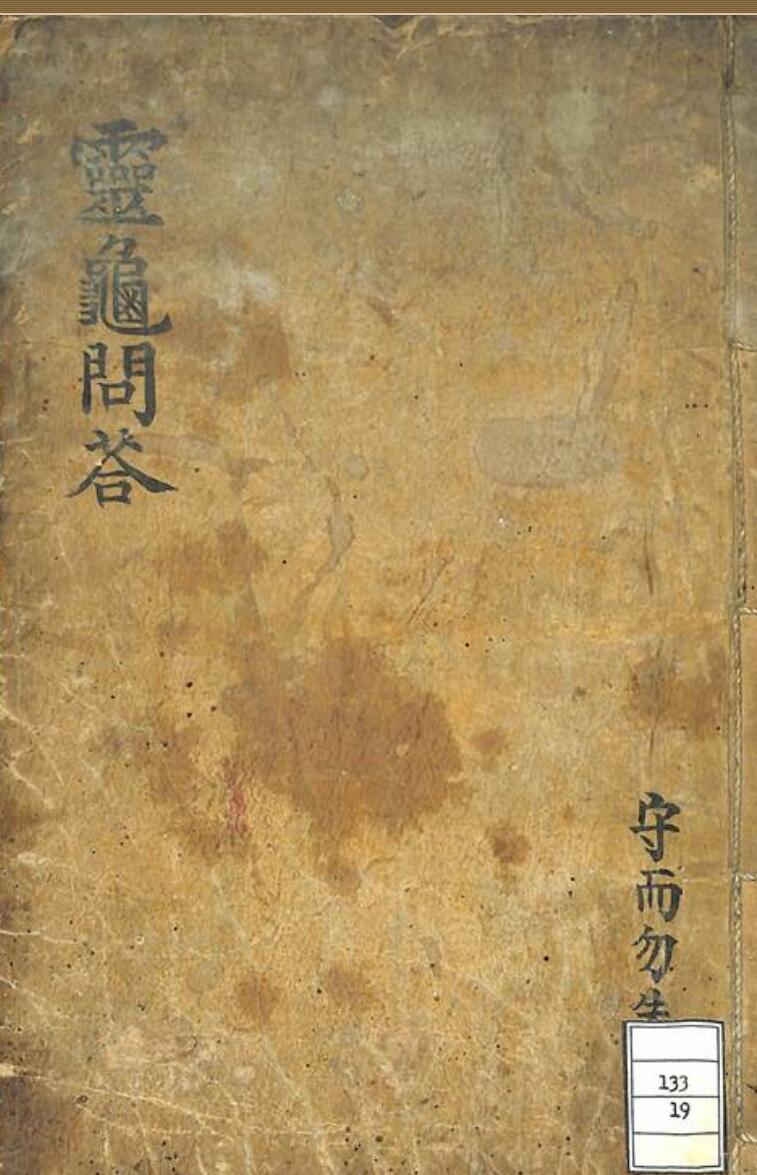 守而勿失
靈龜問答
133
19